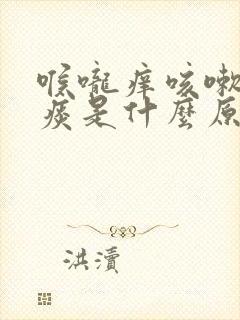 喉嚨痒咳嗽
痰是什麼原
洪瀆